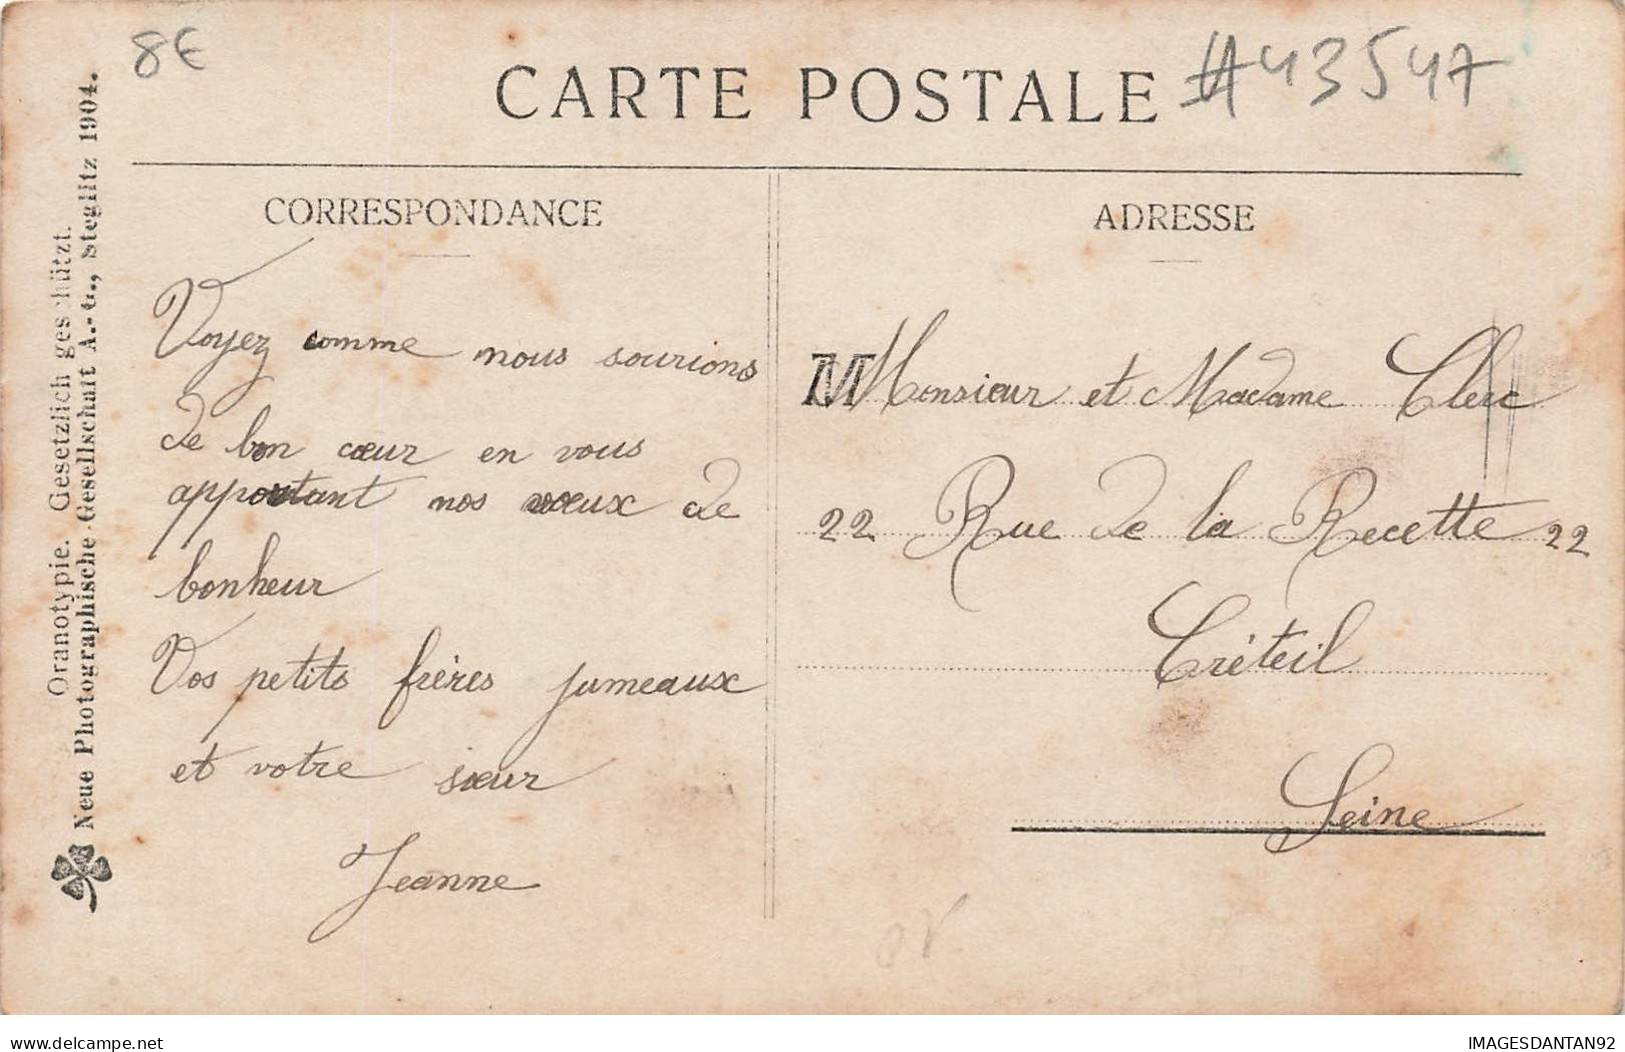 8€
CARTE POSTALE
#43547
Oranotypie. Gesetzlich geschützt.
Neue Photographische Gesellschaft A.-G., Steglitz 1904.
CORRESPONDANCE
Voyez comme nous sourions
de bon cœur en vous
apportant nos vœux de
bonheur
Vos petits frères jumeaux
et votre sœur
Jeanne
ADRESSE
M Monsieur et Madame Clerc
22 Rue de la Recette 22
Créteil
Seine
delcampe.net
IMAGESDANTAN92